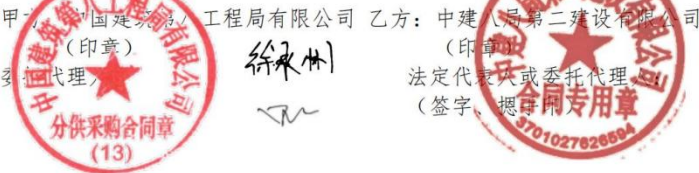 甲方：中国建筑第八工程局有限公司 乙方：中建八局第二建设有限公司
（印章）
（印章）
委托代理人
徐永州
法定代表人或委托代理人：
（签字、摁手印）
中国建筑第八工程局有限公司
分供采购合同章
(13)
合同专用章
3701027626594